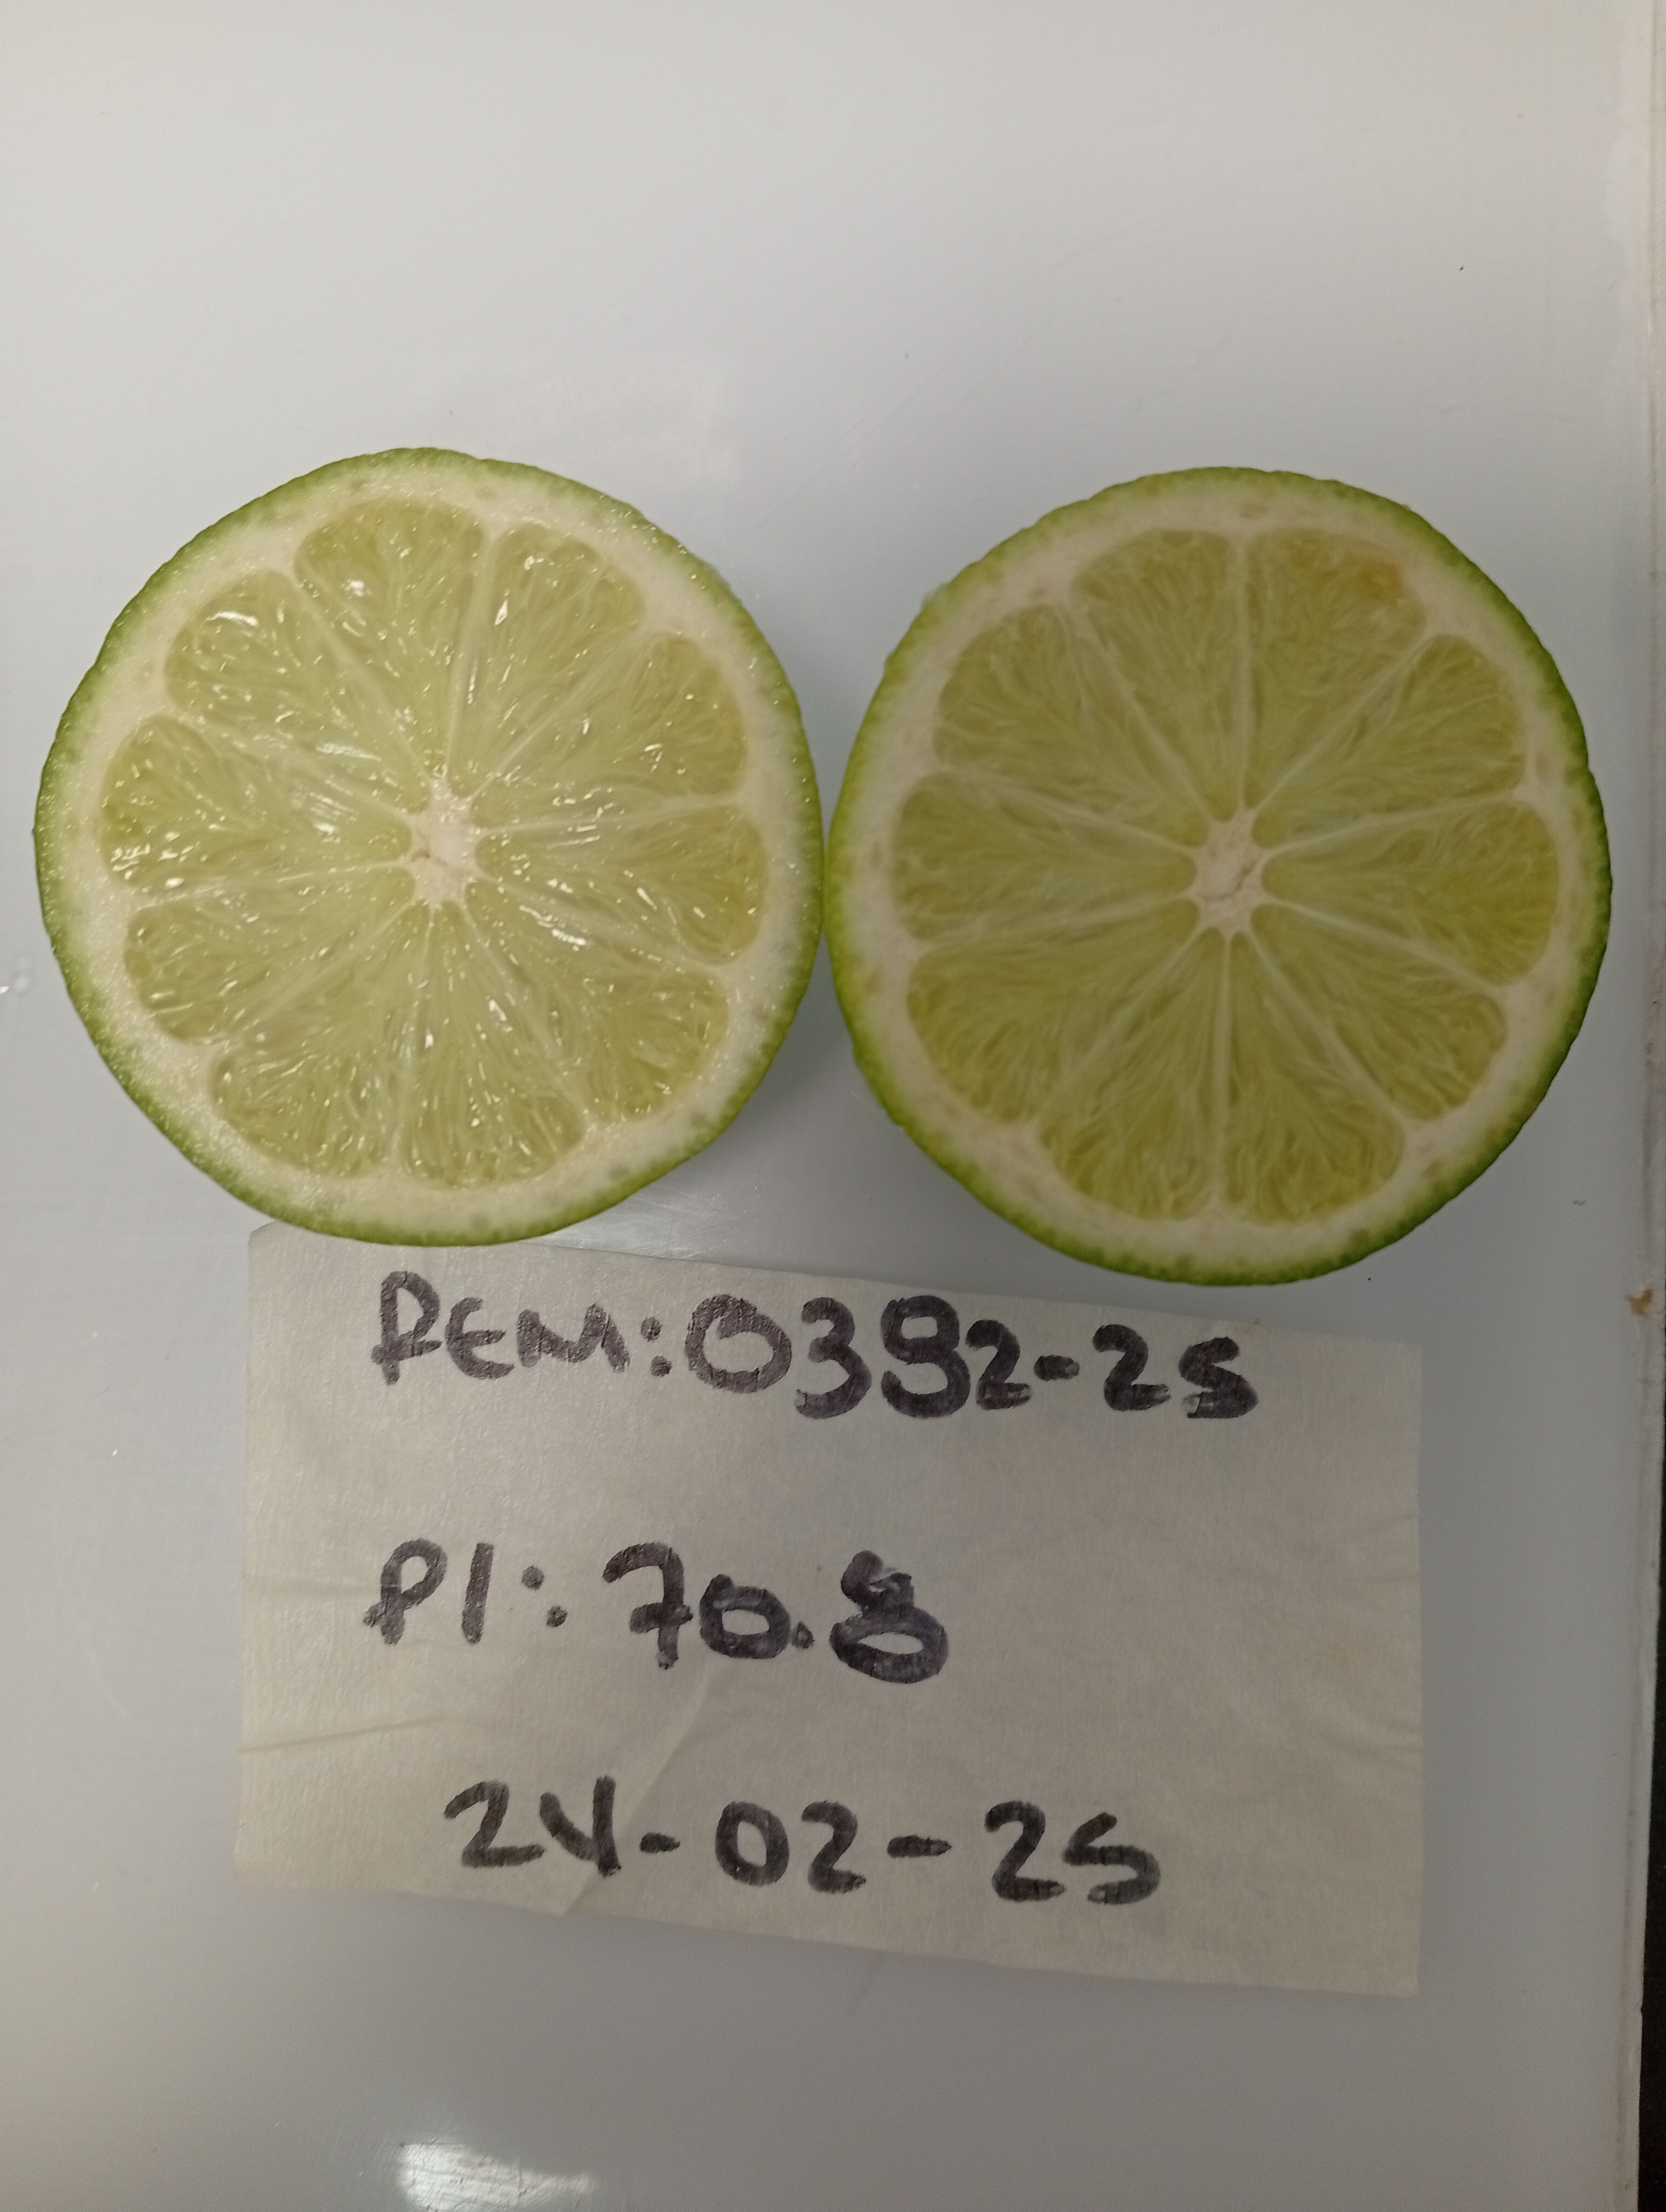 REM:0392-25
PI:70.8
24-02-25